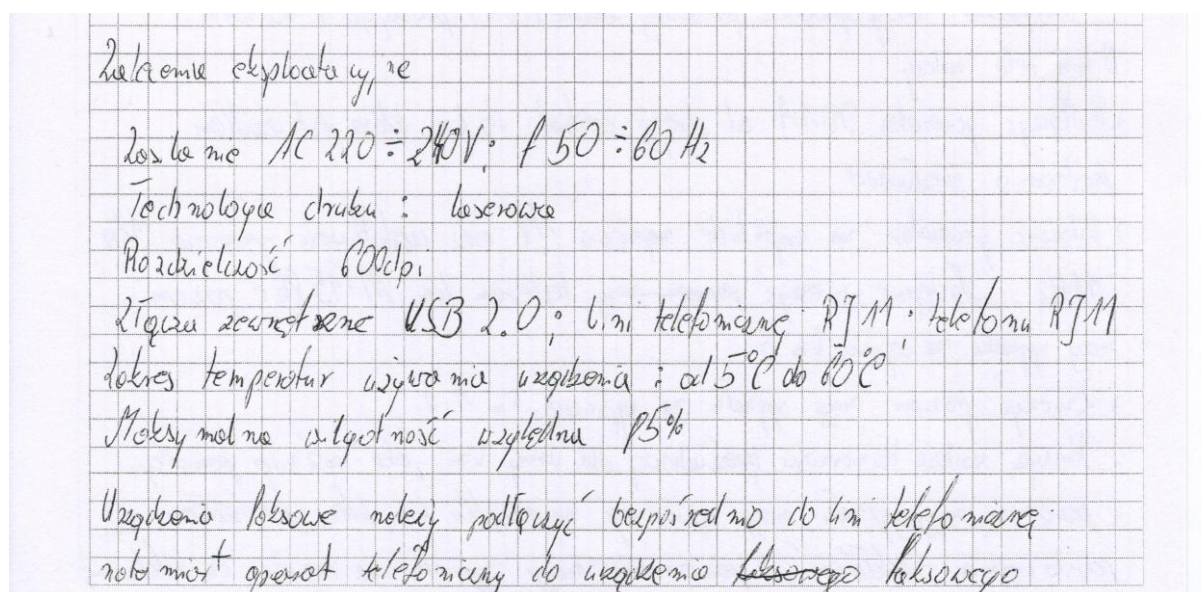 Zalecenia eksploatacyjne
Zasilanie AC 220÷240V; f 50÷60 Hz
Technologia druku : laserowa
Rozdzielczość 600dpi
Złącza zewnętrzne USB 2.0; lini telefonicznej RJ11; telefonu RJ11
Zakres temperatur używania urządzenia : od 5°C do 60°C
Maksymalna wilgotność względna 85%
Urządzenia faksowe należy podłączyć bezpośrednio do lini telefonicznej
natomiast aparat telefoniczny do urządzenia faksowego faksowego